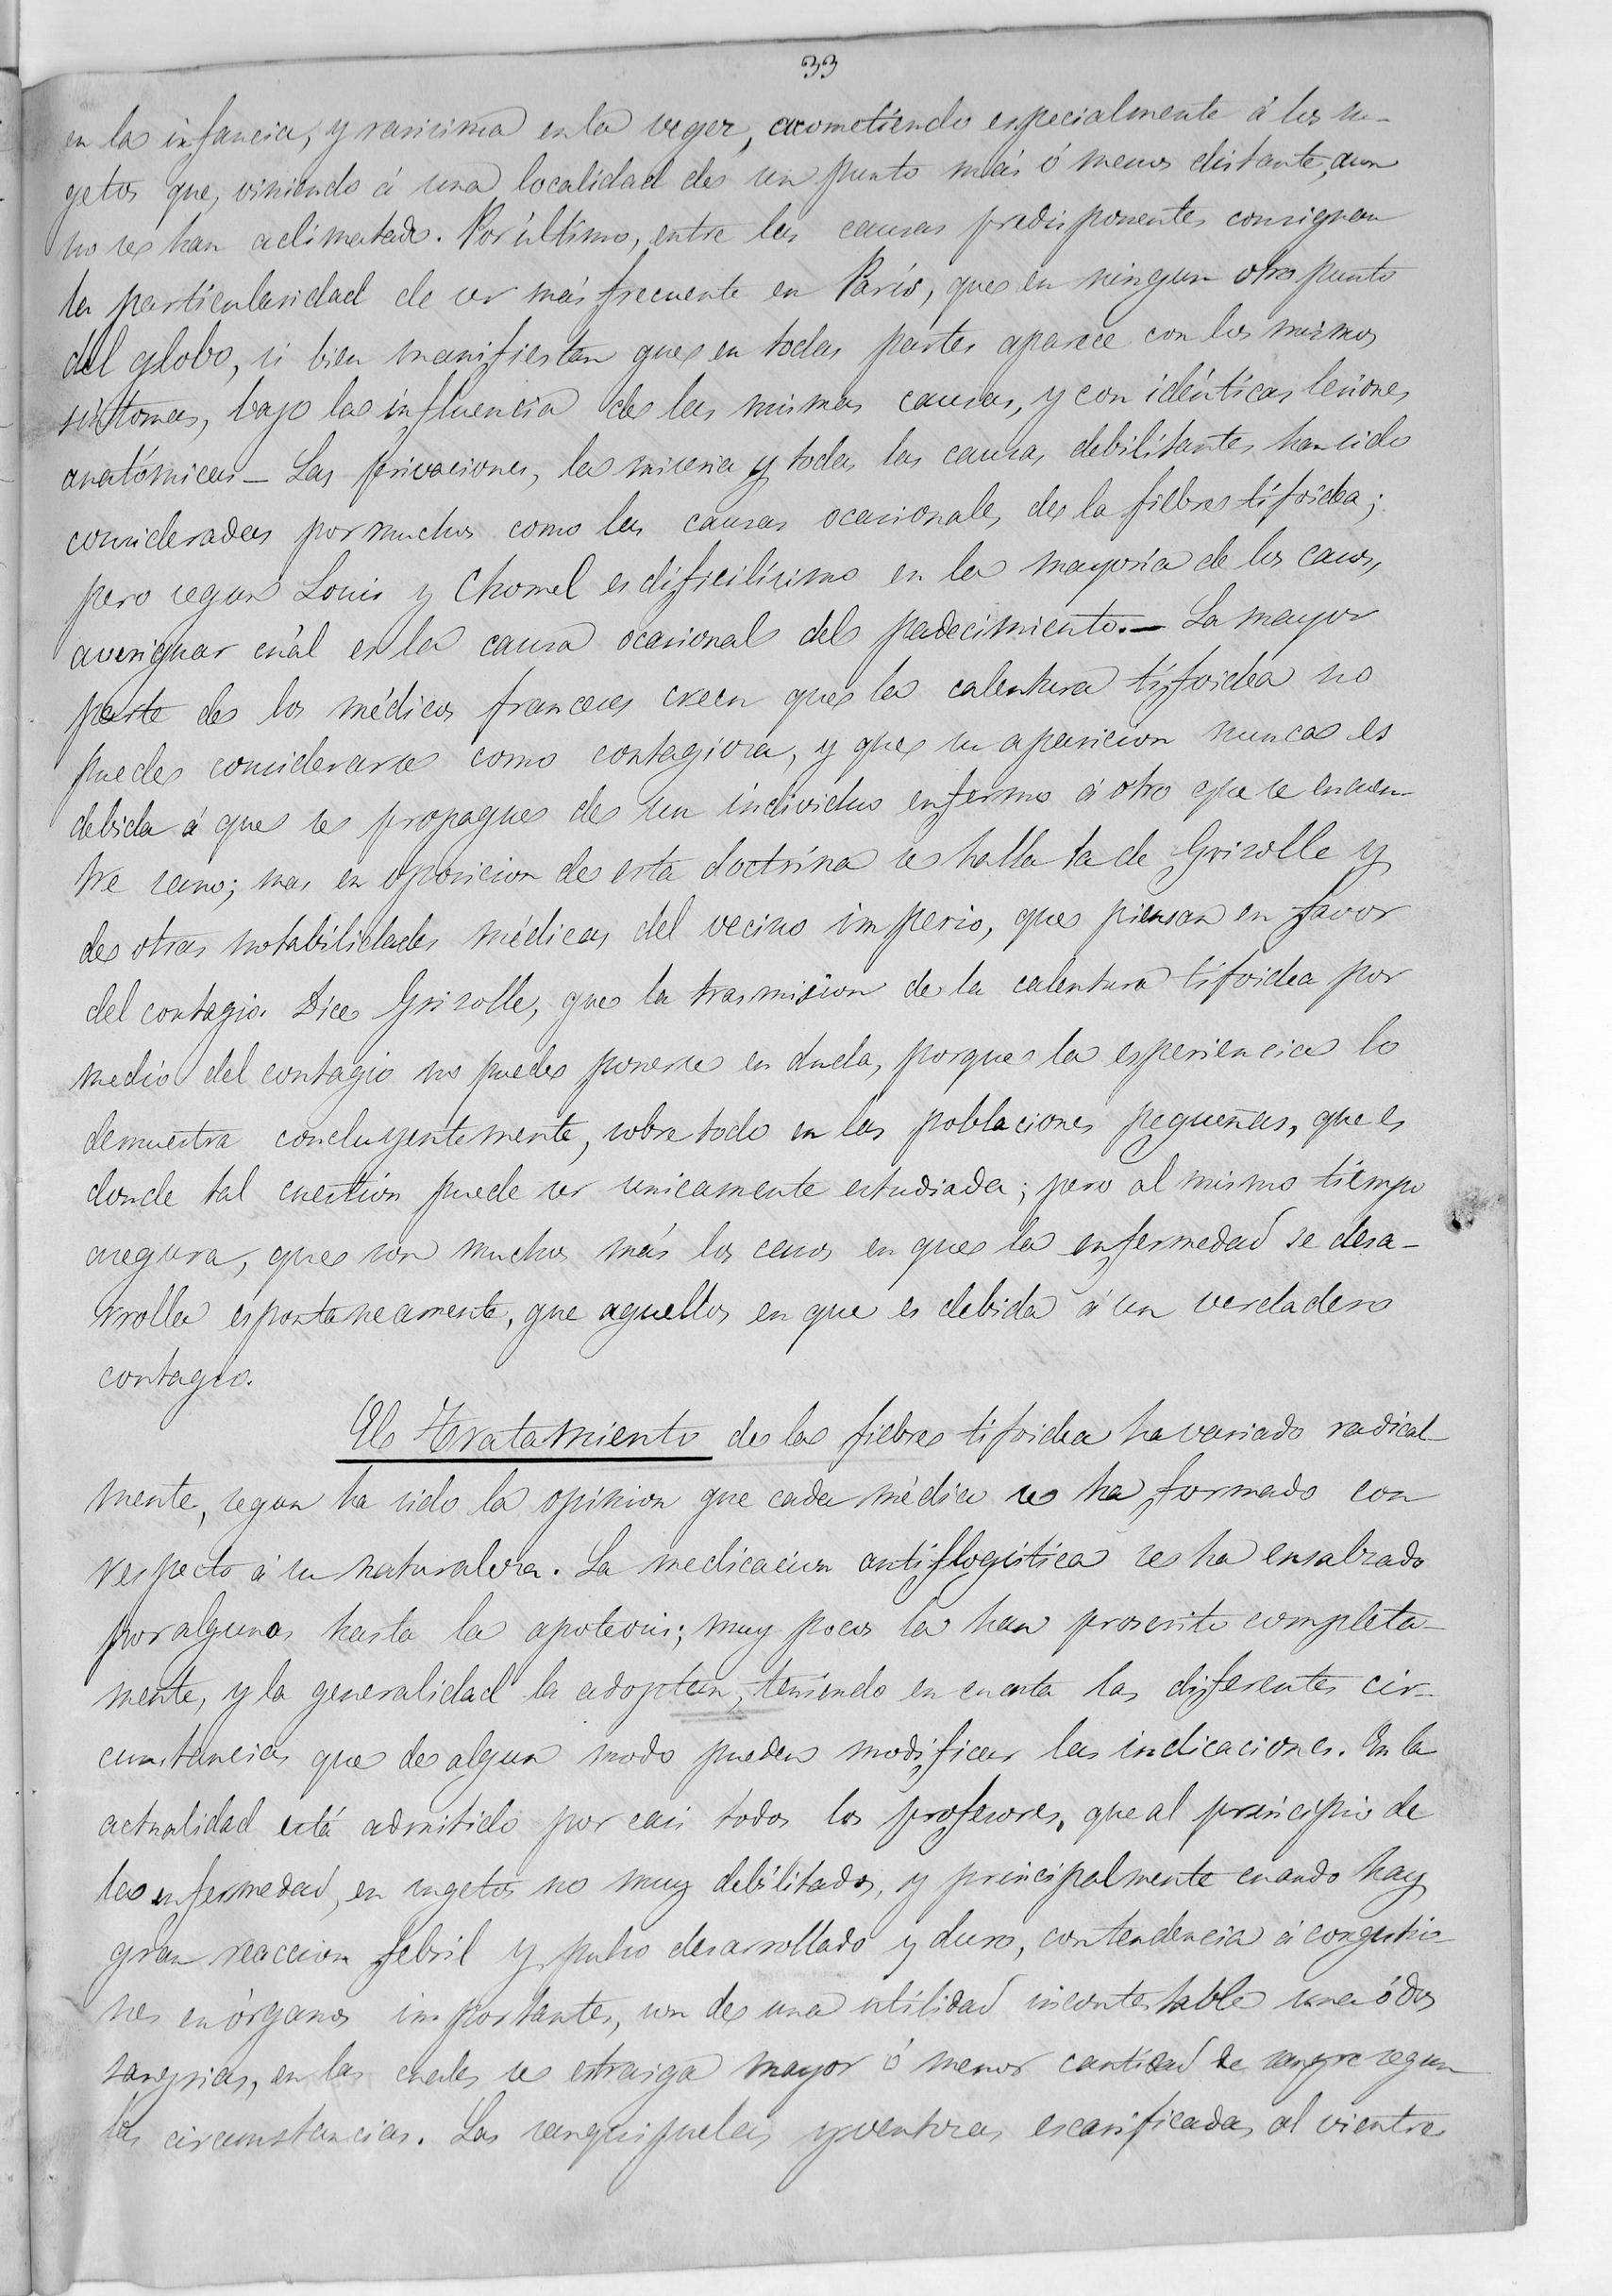 33
en la infancia, y rarísima en la vegez, acometiendo especialmente á los su-
getos que, viniendo á una localidad de un punto más ó menos distante, aun
no se han aclimatado. Por último, entre las causas predisponentes consignan
la particularidad de ser más frecuente en París, que en ningun otro punto
del globo, si bien manifiestan que en todas partes aparece con los mismos
síntomas, bajo la influencia de las mismas causas, y con idénticas lesiones
anatómicas — Las privaciones, la miseria y todas las causas debilitantes han sido
consideradas por muchos como las causas ocasionales de la fiebre tifoidea;
pero segun Louis y Chomel es dificilísimo en la mayoría de los casos,
averiguar cuál es la causa ocasional del padecimiento. — La mayor
parte de los médicos franceses creen que la calentura tifoidea no
puede considerarse como contagiosa, y que su aparicion nunca es
debida á que se propague de un individuo enfermo á otro que se encuen-
tre sano; mas en oposicion de esta doctrina se halla la de Grisolle y
de otras notabilidades médicas del vecino imperio, que piensan en favor
del contagio. Dice Grisolle, que la trasmision de la calentura tifoidea por
medio del contagio no puede ponerse en duda, porque la esperiencia lo
demuestra concluyentemente, sobre todo en las poblaciones pequeñas, que es
donde tal cuestion puede ser unicamente estudiada; pero al mismo tiempo
asegura, que son muchos más los casos en que la enfermedad se desa-
rrolla espontaneamente, que aquellos en que es debida á un verdadero
contagio.
El Tratamiento de la fiebre tifoidea ha variado radical-
mente, segun ha sido la opinion que cada médico se ha formado con
respecto á su naturaleza. La medicacion antiflogística se ha ensalzado
por algunos hasta la apoteosis; muy pocos la han proscrito completa-
mente, y la generalidad la adoptan, teniendo en cuenta las diferentes cir-
cunstancias que de algun modo pueden modificar las indicaciones. En la
actualidad está admitido por casi todos los profesores, que al principio de
la enfermedad, en sugetos no muy debilitados, y principalmente cuando hay
gran reaccion febril y pulso desarrollado y duro, con tendencia á congestio-
nes en órganos importantes, son de una utilidad incontestable una ó dos
sangrias, en las cuales se estraiga mayor ó menor cantidad de sangre segun
las circunstancias. Las sanguijuelas y ventosas escarificadas al vientre